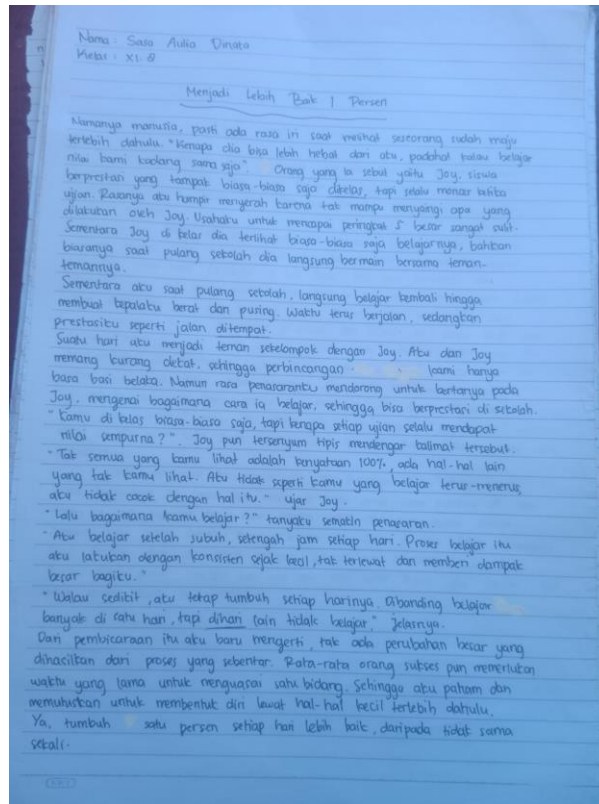 Nama : Sasa Aulia Dinata
Kelas : XI. 8
Menjadi Lebih Baik 1 Persen
Namanya manusia, pasti ada rasa iri saat melihat seseorang sudah maju
terlebih dahulu. "Kenapa dia bisa lebih hebat dari aku, padahal kalau belajar
nilai kami kadang sama saja". Orang yang ia sebut yaitu Joy, siswa
berprestasi yang tampak biasa-biasa saja dikelas, tapi selalu menar ketika
ujian. Rasanya aku hampir menyerah karena tak mampu menyaingi apa yang
dilakukan oleh Joy. Usahaku untuk mencapai peringkat 5 besar sangat sulit.
Sementara Joy di kelas dia terlihat biasa-biasa saja belajarnya, bahkan
biasanya saat pulang sekolah dia langsung bermain bersama teman-
temannya.
Sementara aku saat pulang sekolah, langsung belajar kembali hingga
membuat kepalaku berat dan pusing. Waktu terus berjalan, sedangkan
prestasiku seperti jalan ditempat.
Suatu hari aku menjadi teman sekelompok dengan Joy. Aku dan Joy
memang kurang dekat, sehingga perbincangan kami hanya
basa basi belaka. Namun rasa penasaranku mendorong untuk bertanya pada
Joy, mengenai bagaimana cara ia belajar, sehingga bisa berprestasi di sekolah.
"Kamu di kelas biasa-biasa saja, tapi kenapa setiap ujian selalu mendapat
nilai sempurna?". Joy pun tersenyum tipis mendengar kalimat tersebut.
"Tak semua yang kamu lihat adalah kenyataan 100%, ada hal-hal lain
yang tak kamu lihat. Aku tidak seperti kamu yang belajar terus-menerus,
aku tidak cocok dengan hal itu." ujar Joy.
"Lalu bagaimana kamu belajar?" tanyaku semakin penasaran.
"Aku belajar setelah subuh, setengah jam setiap hari. Proses belajar itu
aku lakukan dengan konsisten sejak kecil, tak terlewat dan memberi dampak
besar bagiku."
"Walau sedikit, aku tetap tumbuh setiap harinya. Dibanding belajar
banyak di satu hari, tapi dihari lain tidak belajar," jelasnya.
Dari pembicaraan itu aku baru mengerti, tak ada perubahan besar yang
dihasilkan dari proses yang sebentar. Rata-rata orang sukses pun memerlukan
waktu yang lama untuk menguasai satu bidang. Sehingga aku paham dan
memutuskan untuk membentuk diri lewat hal-hal kecil terlebih dahulu.
Ya, tumbuh satu persen setiap hari lebih baik, daripada tidak sama
sekali.